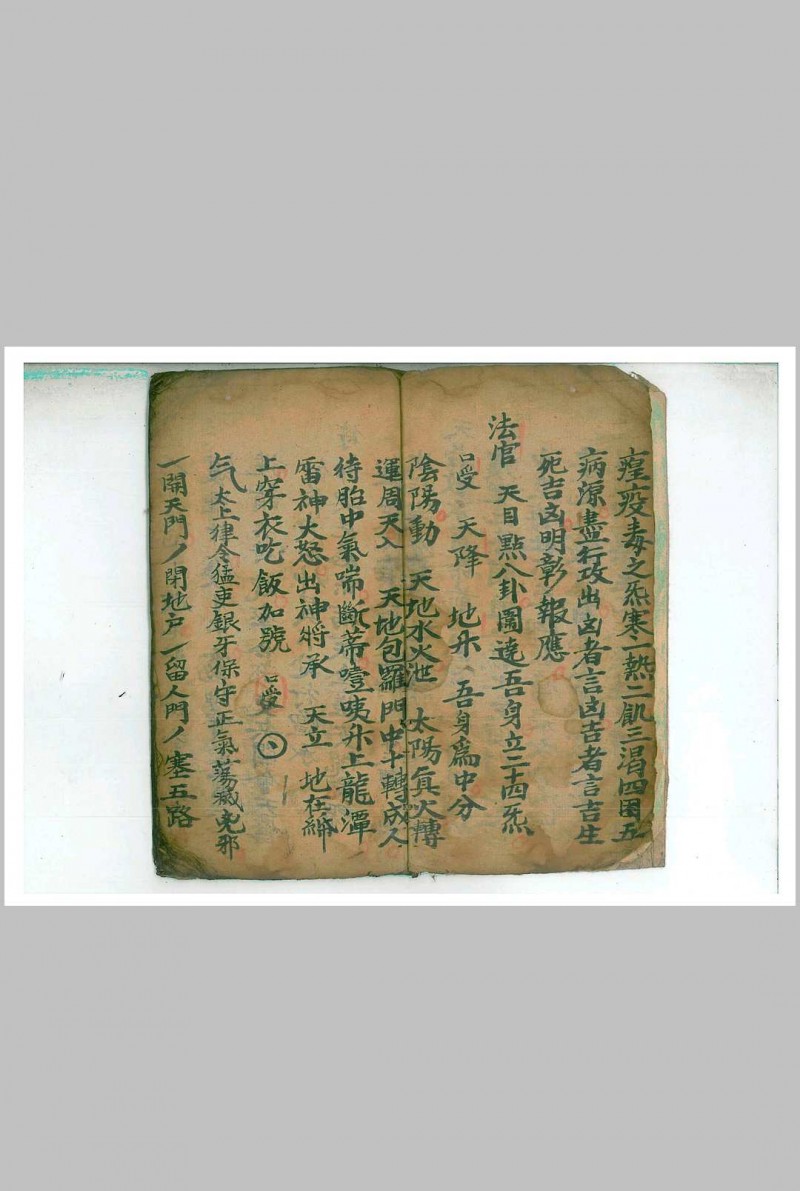 瘟疫毒之炁寒一熱二飢三渴四困五
病源盡行攻出凶者言凶吉者言吉生
死吉凶明彰報應
法官 天目點八卦圖遶吾身立二十四炁
天降 地升 吾身為中分
陰陽動 天地水火泄 太陽真火轉
運周天入 天地包羅門中十轉成人
待胎中氣喘斷蒂噎咦升上龍潭
雷神大怒出神將承 天立 地在
上穿衣吃飯加號
气太上律令猛吏銀牙保守正氣蕩穢鬼邪
一開天門ノ閉地户一留人門ノ塞五路